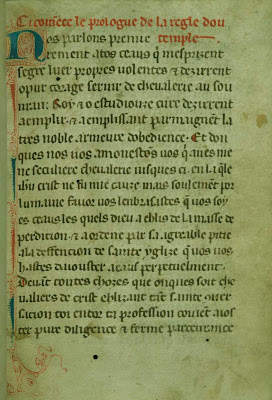 Ci comẽce le prologue de la regle dou
Nos parlons premie temple.
rement a tos ceaus q̃ mesprizent
segre luer propres volentes & dezirrent
o pur corage seruir de cheualerie au sou
rain Roy & o estudiouze cure dezirrent
aemplir & aemplissant parmaignẽt la
tres noble armeure dobedience. Et don
ques nos uos amonestõs uos q̃ aues me
ne seculiere cheualerie iusques ci en laq̃le
ihũ crist ne fu mie cauze mais soulemẽt por
humaine fauor uos lenbrasistes q̃ uos soy
es ceaus les quels dieu a eslis de la masse de
perdition & a ordené par sa agreable pitie
a la deffencion de sainte yglize q̃ uos uos
hastes daiouster a eaus perpetuelment.
Deuãt toutes chozes que onques soit che
ualiers de crist eslizant tãt sainte uuer
sacion toi entor ta profession couiẽt aios
ter pure diligence & ferme perceuerance